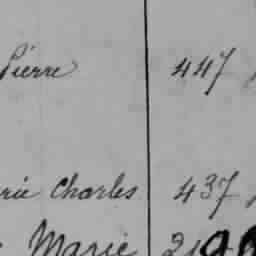 Pierre 447
rie Charles 437
Marie